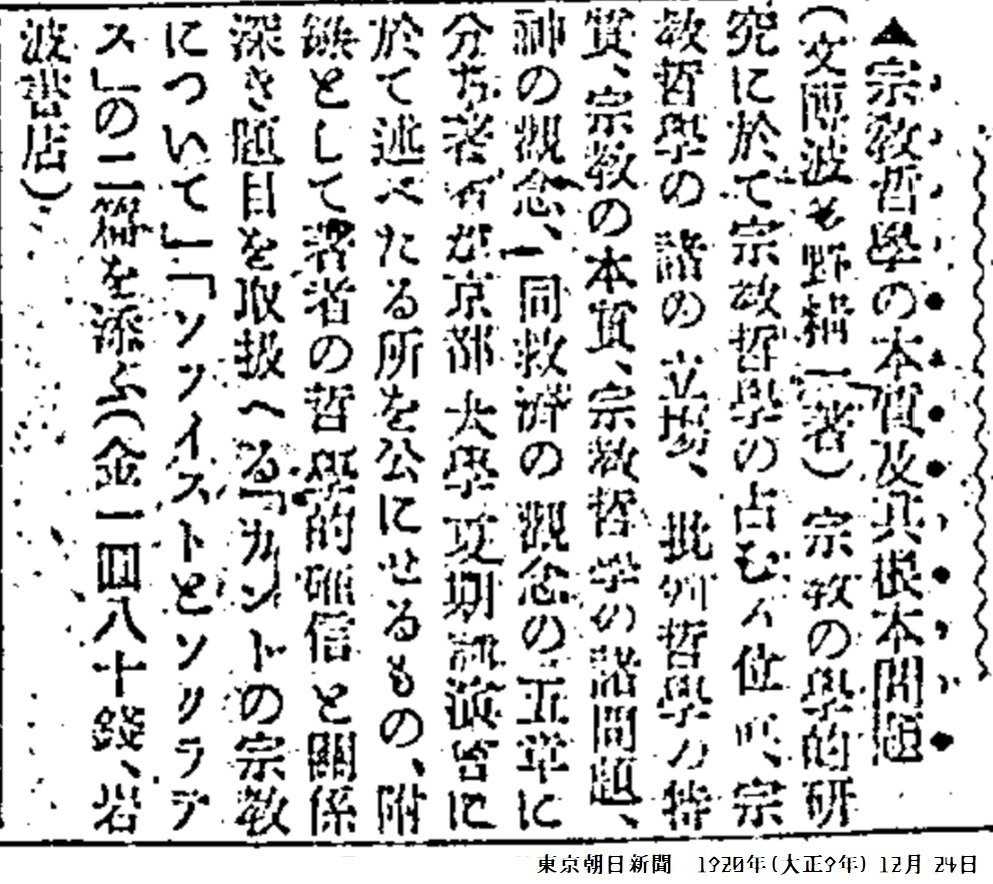 ▲宗教哲學の本質及其根本問題
(文博波多野精一著)宗教の學的研
究に於て宗教哲學の占むる位置、宗
教哲學の諸の立場、批判哲學の特
質、宗教の本質、宗教哲學の諸問題、
神の觀念、同救濟の觀念の五章に
分ち著者が京都大學夏期講演會に
於て述べたる所を公にせるもの、附
錄として著者の哲學的確信と關係
深き題目を取扱へる「カントの宗教
について」「ソフイストとソクラテ
ス」の二篇を添ふ(金一圓八十錢、岩
波書店)
東京朝日新聞 1920年(大正9年) 12月 24日